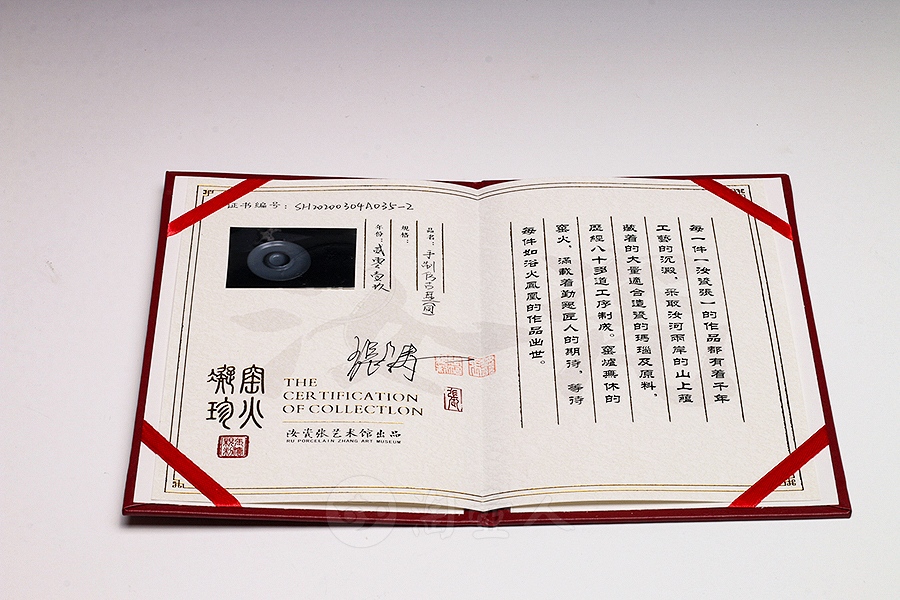 证书编号：SH20200304A035-2
品名：手制仿古耳间
规格：
年份：贰零壹玖
窑火
凝珍
THE
CERTIFICATION
OF COLLECTLON
汝瓷张艺术馆出品
RU PORCELAIN ZHANG ART MUSEUM
每一件「汝瓷張」的作品都有着千年
工藝的沉澱，采取汝河兩岸的山上蘊
藏着的大量適合造瓷的瑪瑙及原料，
歷經八十多道工序制成。窑爐無休的
窑火，滿載着勤懇匠人的期待，等待
每件如浴火鳳凰的作品出世。